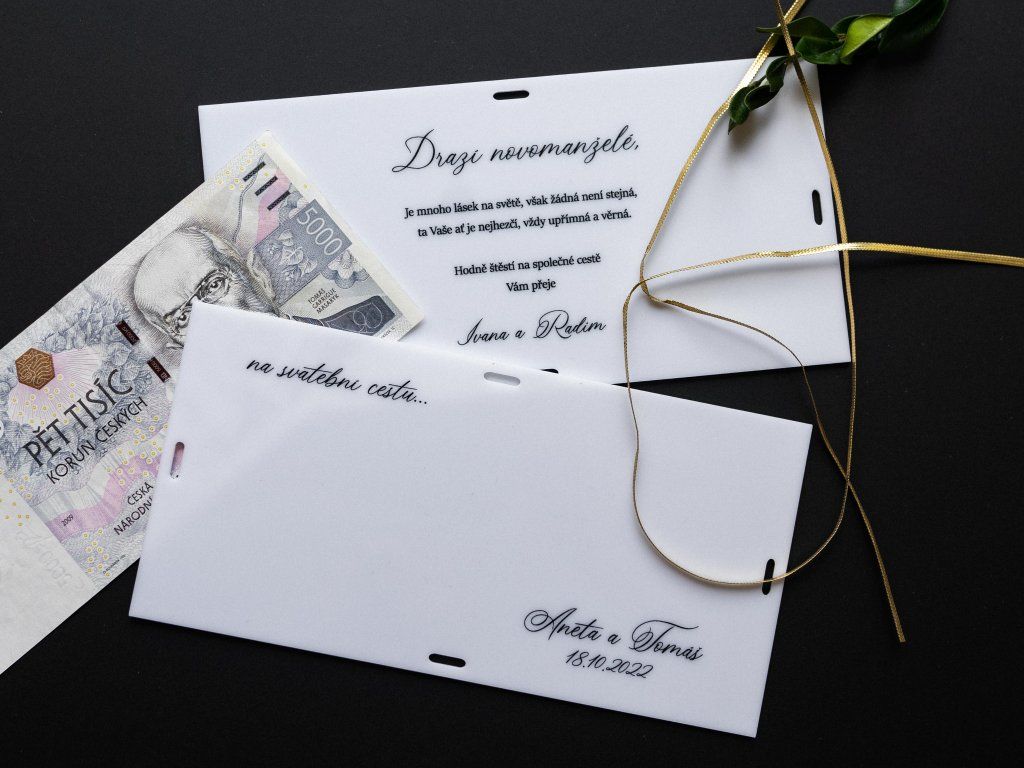 Drazí novomanželé,
Je mnoho lásek na světě, však žádná není stejná,
ta Vaše ať je nejhezčí, vždy upřímná a věrná.
Hodně štěstí na společné cestě
Vám přeje
Ivana a Radim
5000
TOMÁŠ
GARRIGUE
MASARYK
PĚT TISÍC
KORUN ČESKÝCH
2009
ČESKÁ
NÁRODNÍ
na svatební cestu...
Aneta a Tomáš
18.10.2022